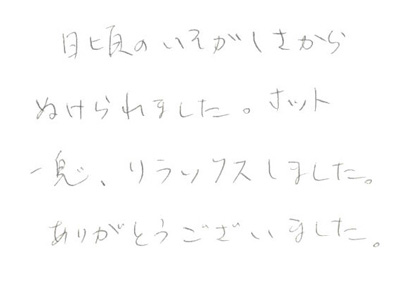 日頃のいそがしさから
ぬけられました。ホット
一息、リラックスしました。
ありがとうございました。